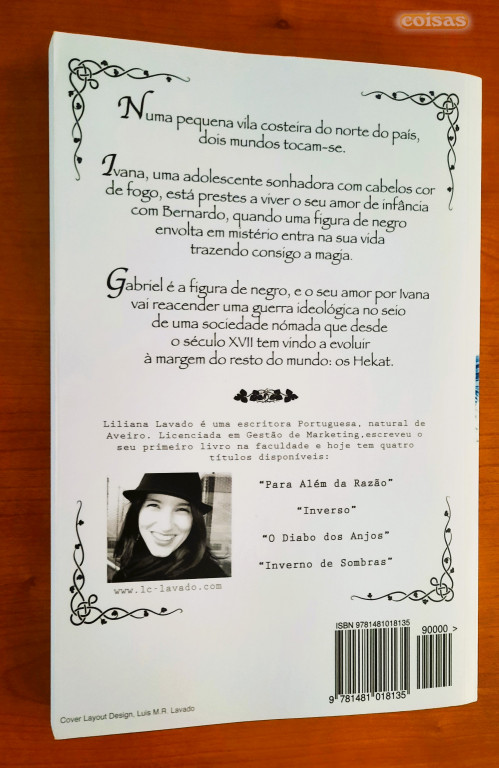 coisas
Numa pequena vila costeira do norte do país,
dois mundos tocam-se.
Ivana, uma adolescente sonhadora com cabelos cor
de fogo, está prestes a viver o seu amor de infância
com Bernardo, quando uma figura de negro
envolta em mistério entra na sua vida
trazendo consigo a magia.
Gabriel é a figura de negro, e o seu amor por Ivana
vai reacender uma guerra ideológica no seio
de uma sociedade nómada que desde
o século XVII tem vindo a evoluir
à margem do resto do mundo: os Hekat.
Liliana Lavado é uma escritora Portuguesa, natural de
Aveiro. Licenciada em Gestão de Marketing,escreveu o
seu primeiro livro na faculdade e hoje tem quatro
títulos disponíveis:
"Para Além da Razão"
"Inverso"
"O Diabo dos Anjos"
"Inverno de Sombras"
www.lc-lavado.com
ISBN 9781481018135
90000 >
9 781481 018135
Cover Layout Design, Luis M.R. Lavado